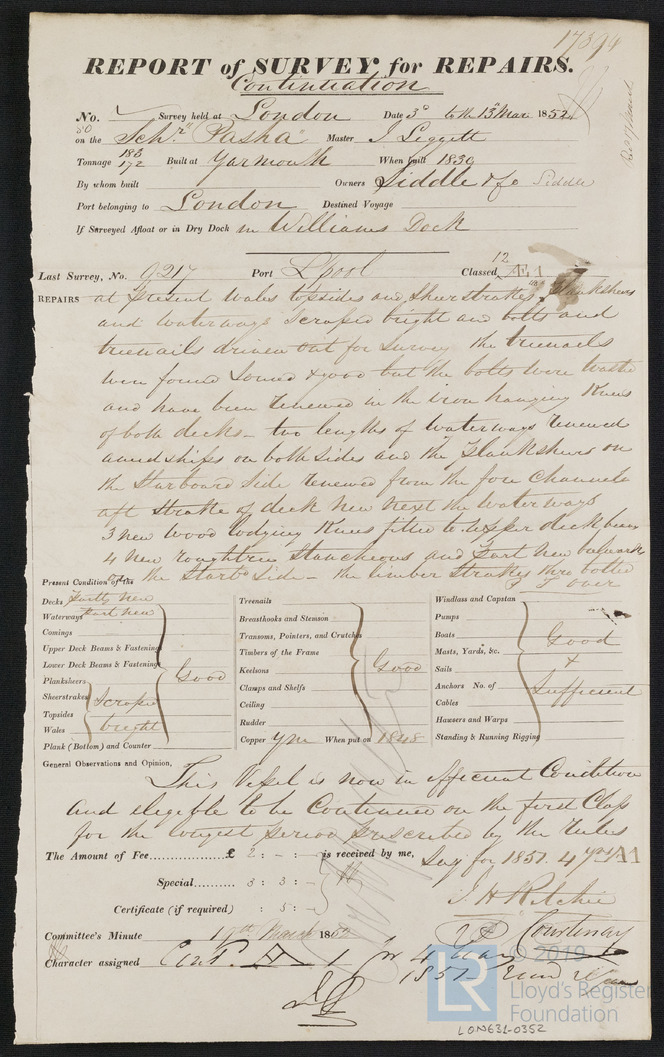 17394
REPORT of SURVEY for REPAIRS.
Continuation
No. Survey held at London Date 3d to the 13th Mar 1852
on the Schr "Pasha" Master J Leggett
Tonnage 183 172 Built at Yarmouth When built 1839
By whom built Owners Siddle & Co Siddle
Port belonging to London Destined Voyage
If Surveyed Afloat or in Dry Dock in Williams Dock
Last Survey, No. 9217 Port Lpool Classed 12 Æ 1
REPAIRS at present Wales topsides and Sheerstrakes Plankshears
and waterways scraped bright and bolts and
treenails driven out for Survey the treenails
were found Sound & good but the bolts were waste
and have been renewed in the iron hanging Knees
of both decks - two lengths of waterways renewed
amidships on both sides and the Plankshears on
the Starboard side renewed from the fore Channels
aft Strake of deck new next the waterways
3 new wood lodging Knees fitted to upper deck beams
4 new roughtree Stancheons and part new bulwark
on the Starbd side - the limber Strakes thro bolted
& over
Present Condition of the
Decks Partly new
Waterways Part new
Comings
Upper Deck Beams & Fastening
Lower Deck Beams & Fastening
Planksheers
Good
Sheerstrakes
Topsides
Wales
Scraped bright
Plank (Bottom) and Counter
Treenails
Breasthooks and Stemson
Transoms, Pointers, and Crutches
Timbers of the Frame
Keelsons
Good
Clamps and Shelfs
Ceiling
Rudder
Copper YM When put on 1848
Windlass and Capstan
Pumps
Boats
Masts, Yards, &c.
Sails
Anchors No. of
Cables
Hawsers and Warps
Standing & Running Rigging
Good & Sufficient
General Observations and Opinion,
This Vessel is now in efficient Condition
and eligible to be Continued on the first Class
for the longest period prescribed by the Rules
The Amount of Fee £ 2 : - : - is received by me, Say for 1851. 4 yrs A1
Special 3 : 3 : -
J. H. Ritchie
Certificate (if required) : 5 : -
Courtenay
Committee's Minute 19th March 1852
Character assigned Cont. A 1 for 4 Years
1851
© 2019
LR
Lloyd's Register
Foundation
LON631-0352